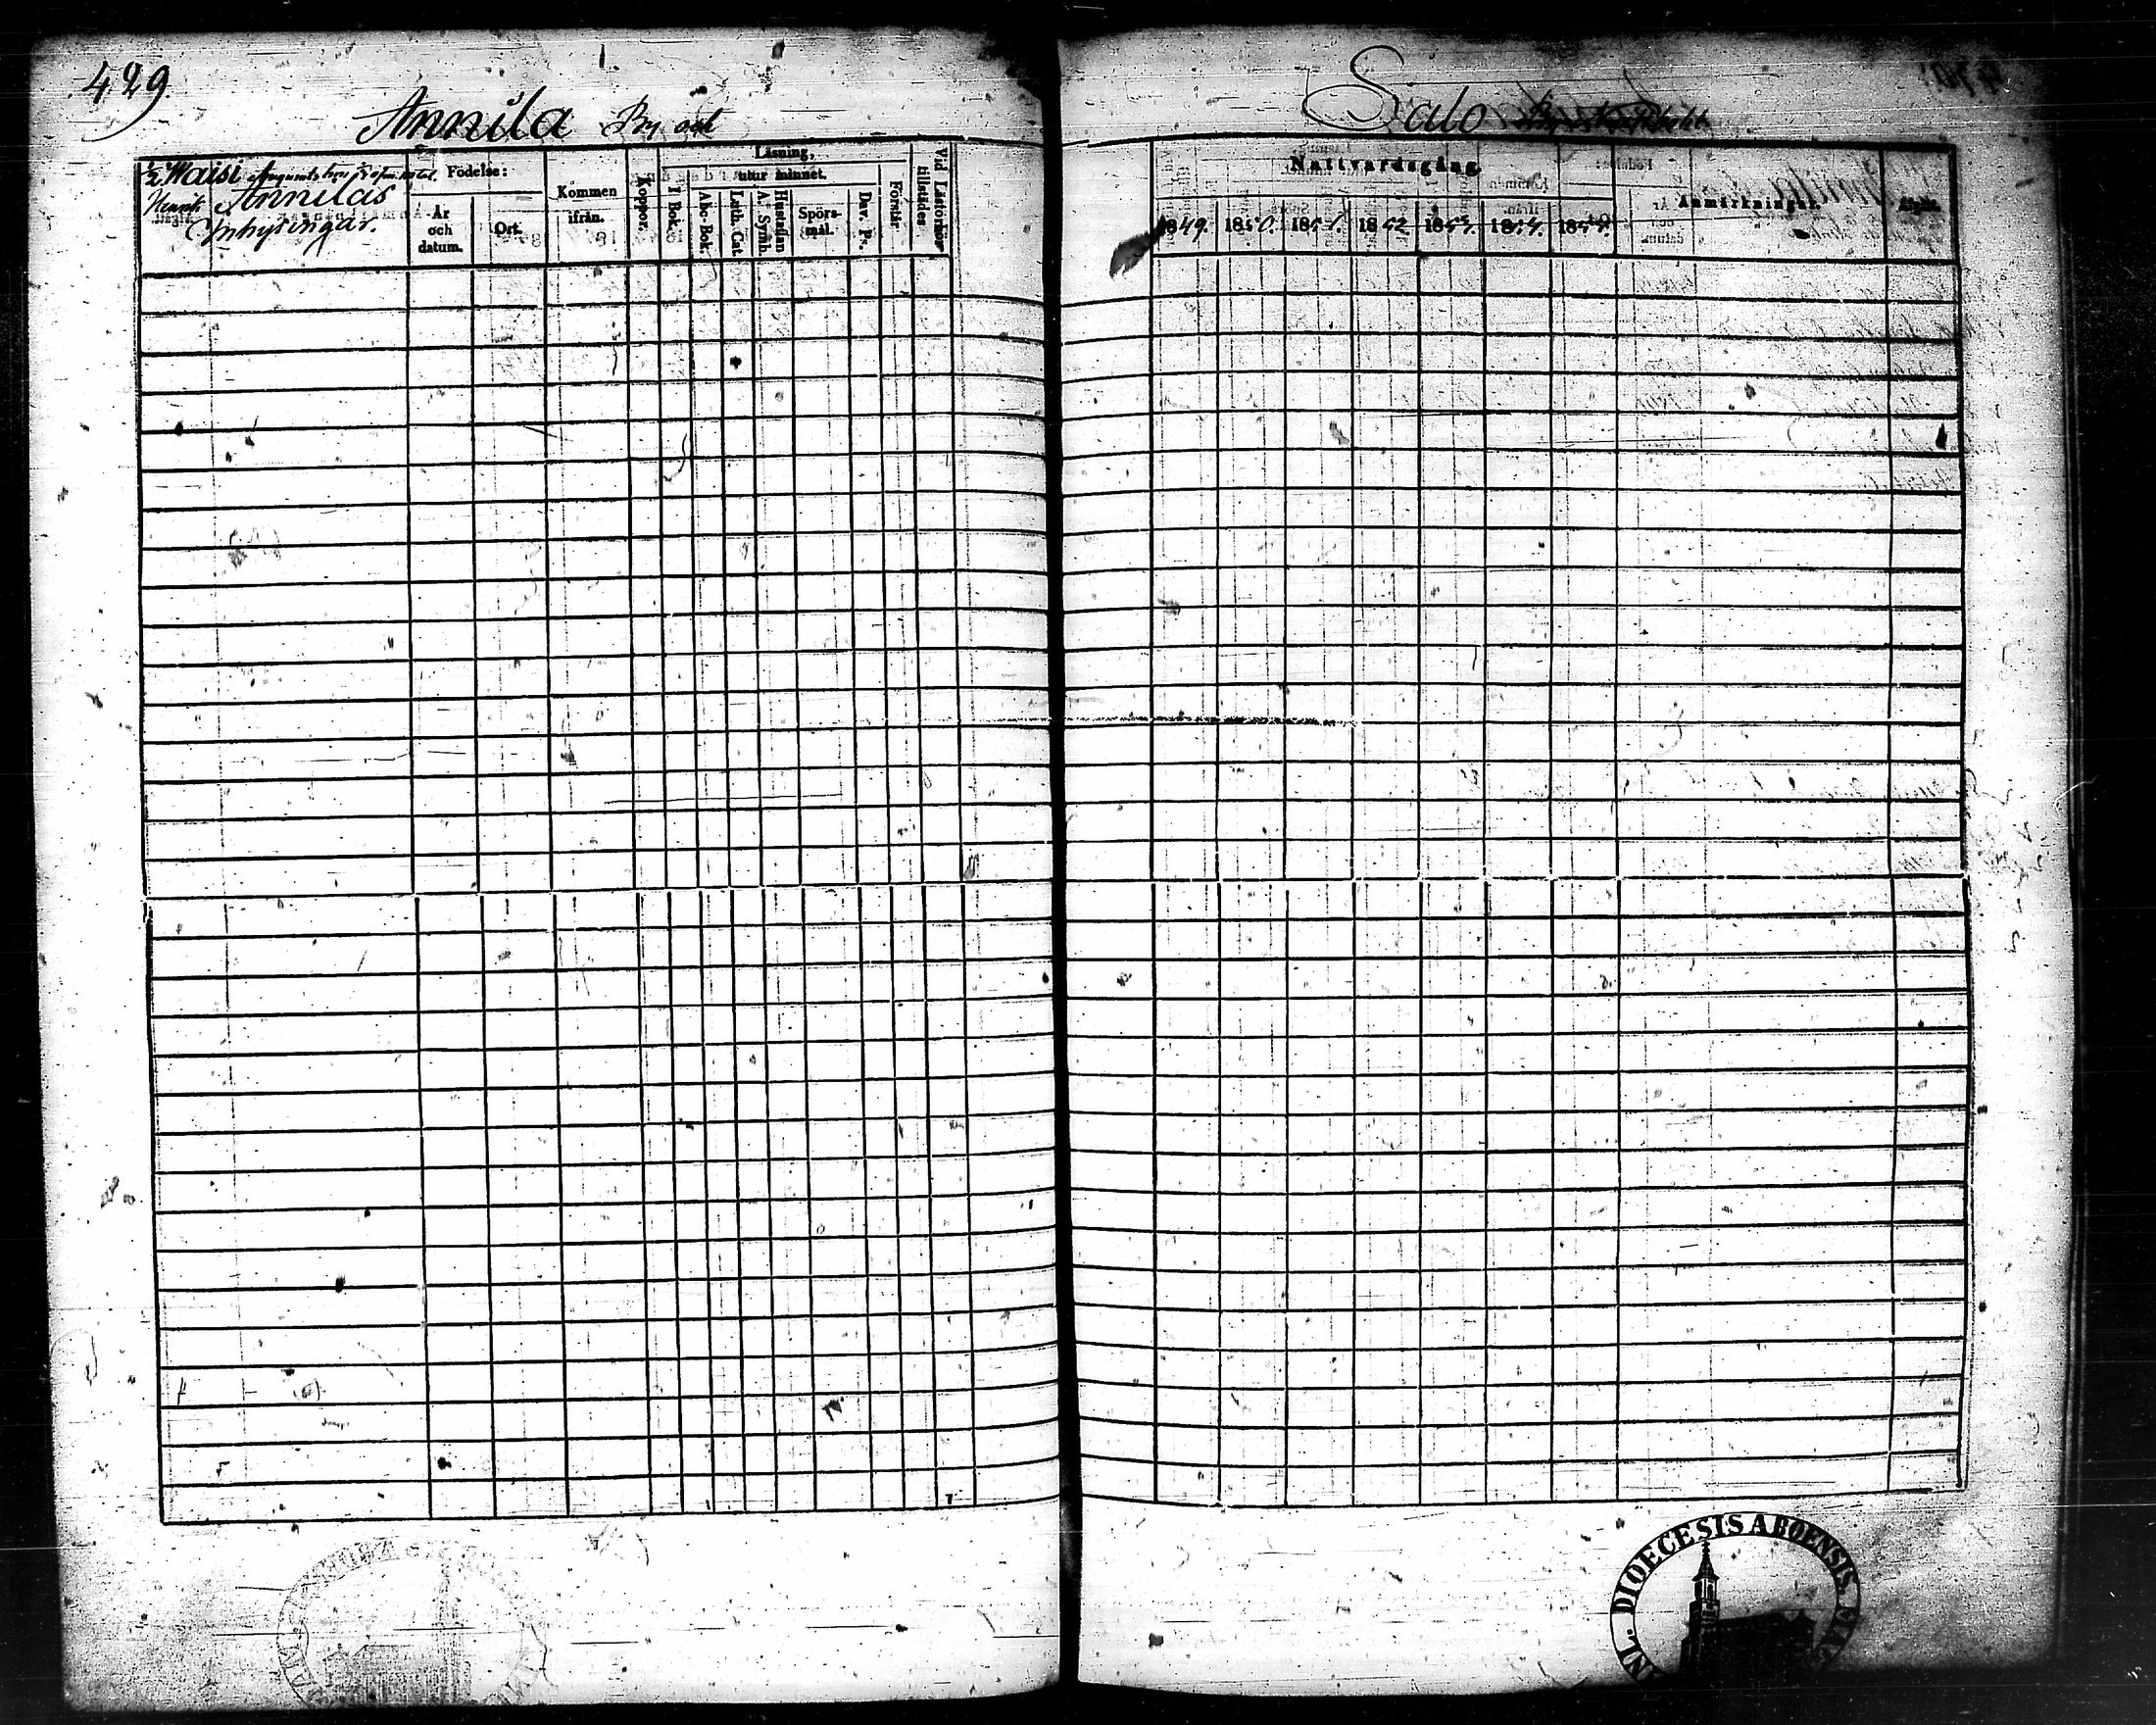 429
Annila By och
Salo
1/2 Waisi
Henrik Annilas
Inhysingar.
Födelse:
År och datum.
Ort.
Kommen ifrån.
Koppor.
Läsning,
utur minnet.
I Bok.
Abc-Bok.
Luth. Cat.
Hustaflan A. Symb.
Spörsmål.
Dav. Ps.
Förstår
Vid Läsförhör tillstädes
Nattvardsgång.
1849. 1850. 1851. 1852 1853. 1854. 1855.
Anmärkningar.
DIOECESIS ABOENSIS